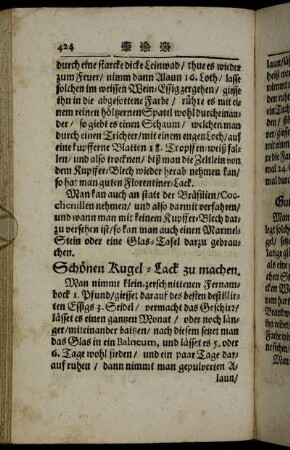 424 ❋ ❋ ❋
durch eine starcke dicke Leinwad / thue es wieder
zum Feuer / nimm dann Alaun 16. Loth / lasse
solchen im weissen Wein-Essig zergehen / giesse
ihn in die abgesottene Farbe / rühre es mit ei-
nem reinen höltzernen Spatel wohl durcheinan-
der / so giebt es einen Schaum / welchen man
durch einen Trichter / mit einem engen Loch / auf
eine kupfferne Blatten 18. Tropffen weiß fal-
len / und also trocknen / biß man die Zeltlein von
dem Kupffer-Blech wieder herab nehmen kan /
so hat man guten Florentiner-Lack.
Man kan auch an statt der Bräsilien / Coc-
chenillen nehmen / und also darmit verfahren /
und wann man mit keinem Kupffer-Blech dar-
zu versehen ist / so kan man auch einen Marmel-
Stein oder eine Glas-Tafel darzu gebrau-
chen.
Schönen Kugel-Lack zu machen.
Man nimmt klein-zerschnittenen Fernam-
bock 1. Pfund / giesset darauf des besten destillir-
ten Essigs 3. Seidel / vermacht das Geschirr /
lässet es einen gantzen Monat / oder noch län-
ger / miteinander baitzen / nach diesem setzt man
das Glas in ein Balneum, und lässet es 5. oder
6. Tage wohl sieden / und ein paar Tage dar-
auf ruhen / dann nimmt man gepulverten A-
laun /